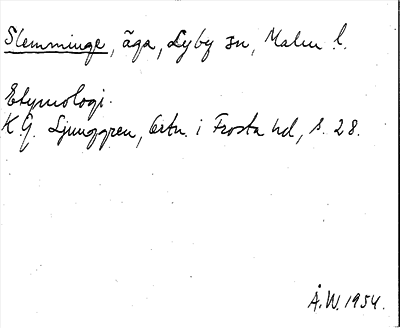 Slemminge, äga, Lyby sn, Malm l.
Etymologi.
K G. Ljunggren, Ortn. i Frosta hd, s. 28.
Å.W. 1954.